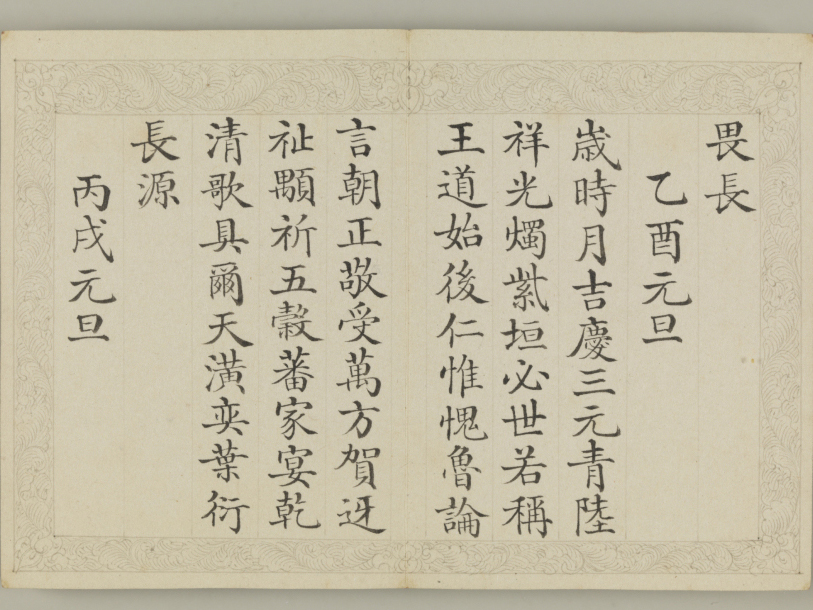 畏長
乙酉元旦
歲時月吉慶三元青陸
祥光燭紫垣必世若稱
王道始後仁惟愧魯論
言朝正敬受萬方賀迓
祉顒祈五穀蕃家宴乾
清歌具爾天潢奕葉衍
長源
丙戌元旦